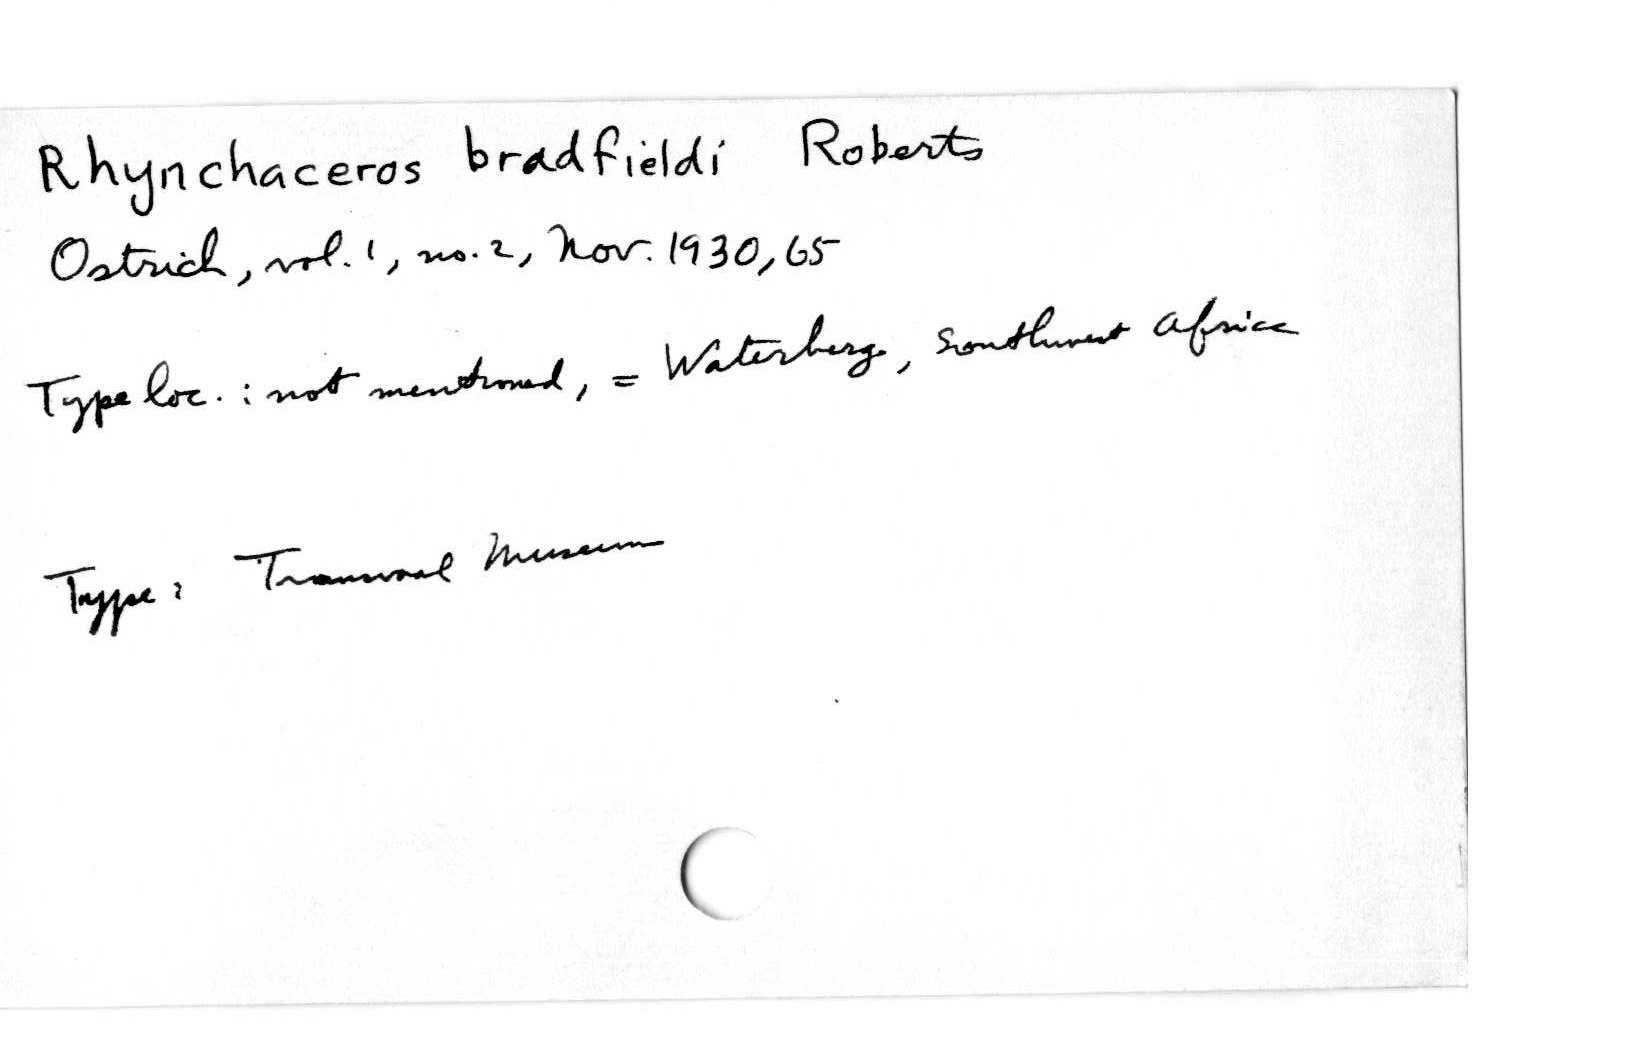 Rhynchaceros bradfieldi Roberts
Ostrich, vol. 1, no. 2, Nov. 1930, 65
Type loc. : not mentioned, = Waterberg, Southwest Africa
Type: Transvaal Museum